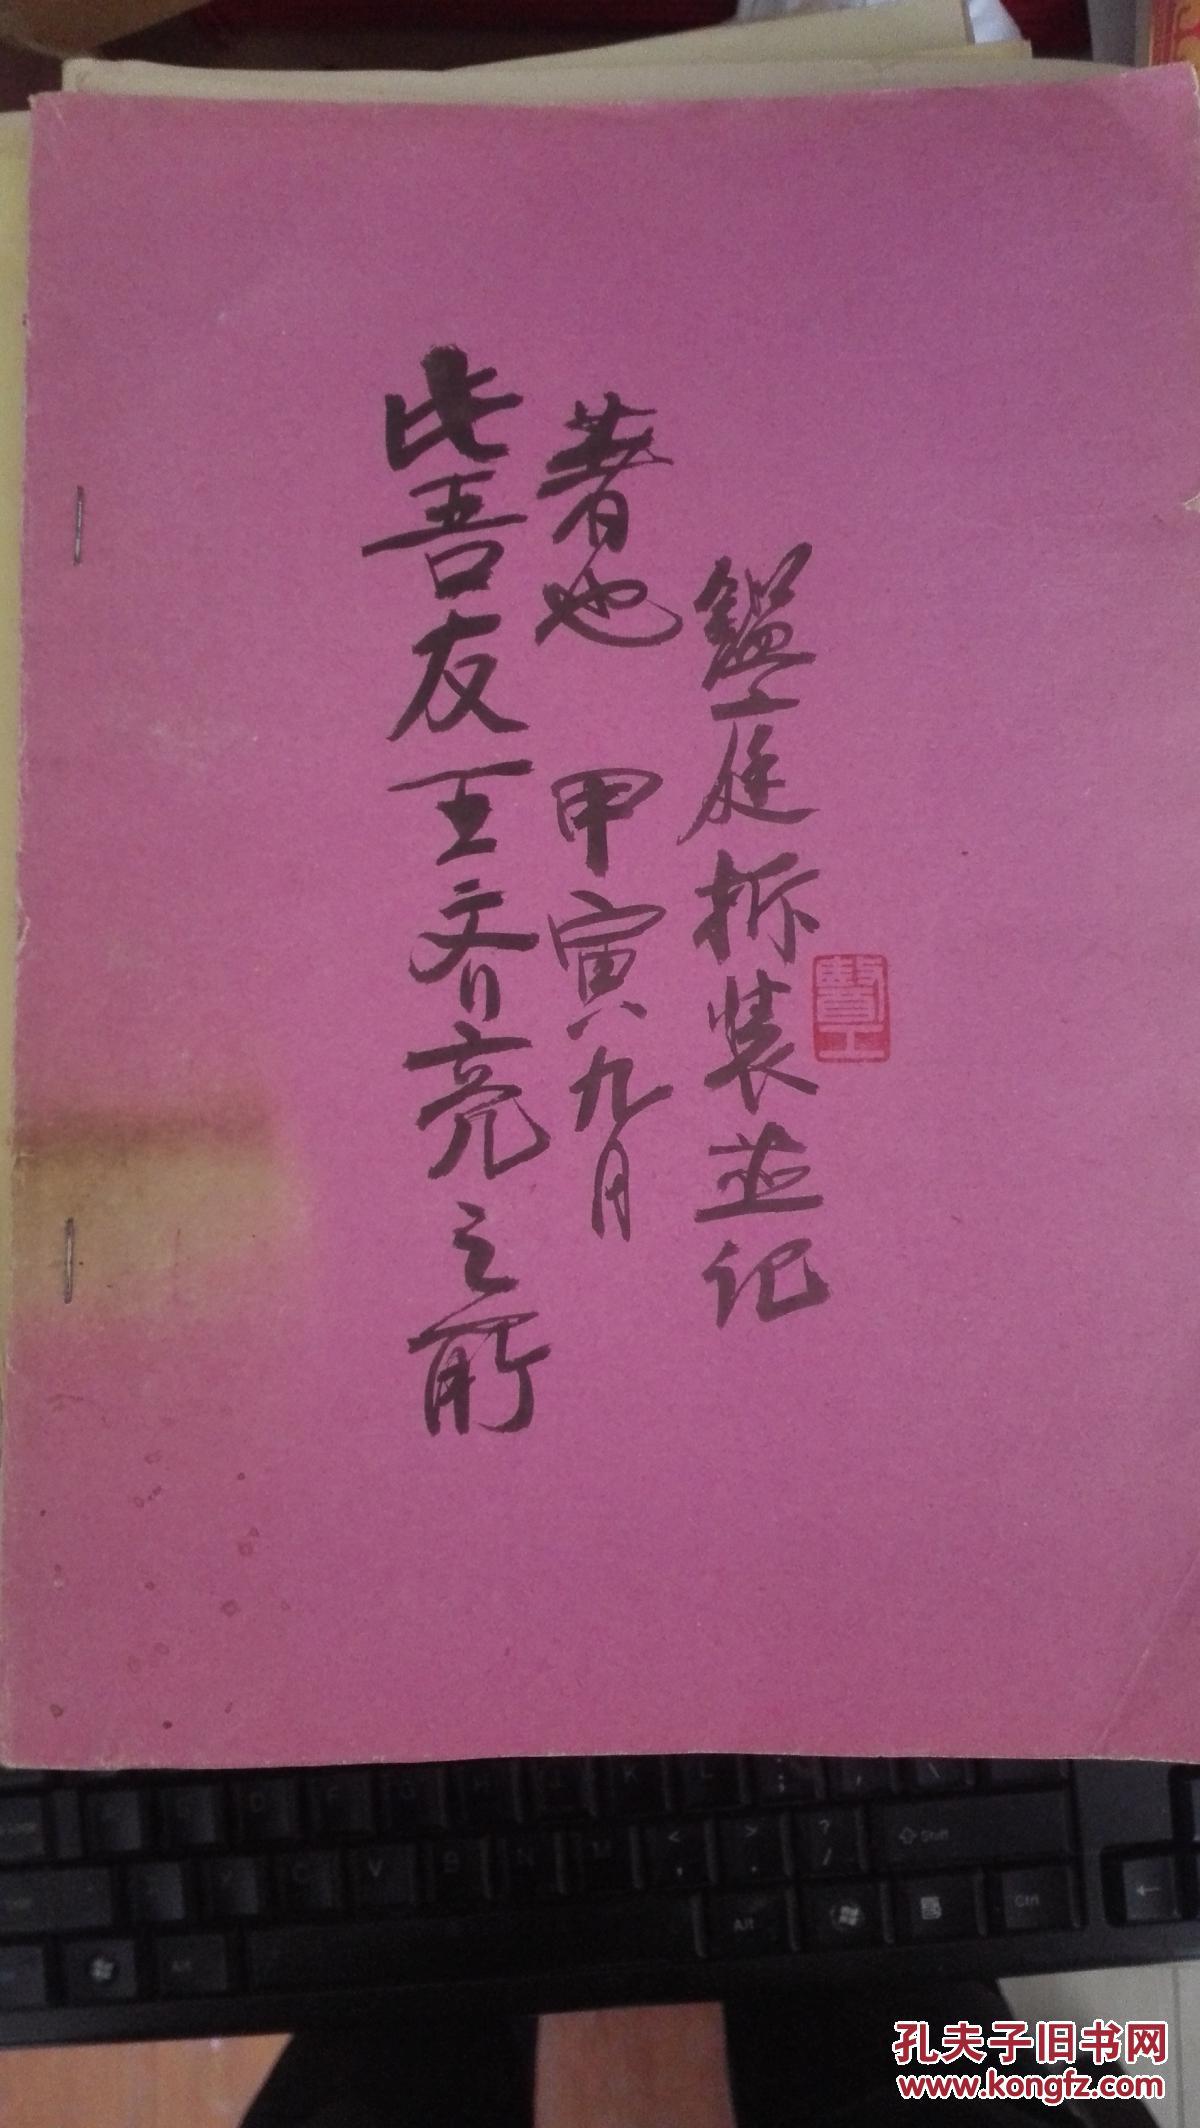 此吾友王齐亮之所
著也 甲寅九月
鑑庭拆装並记
孔夫子旧书网
www.kongfz.com